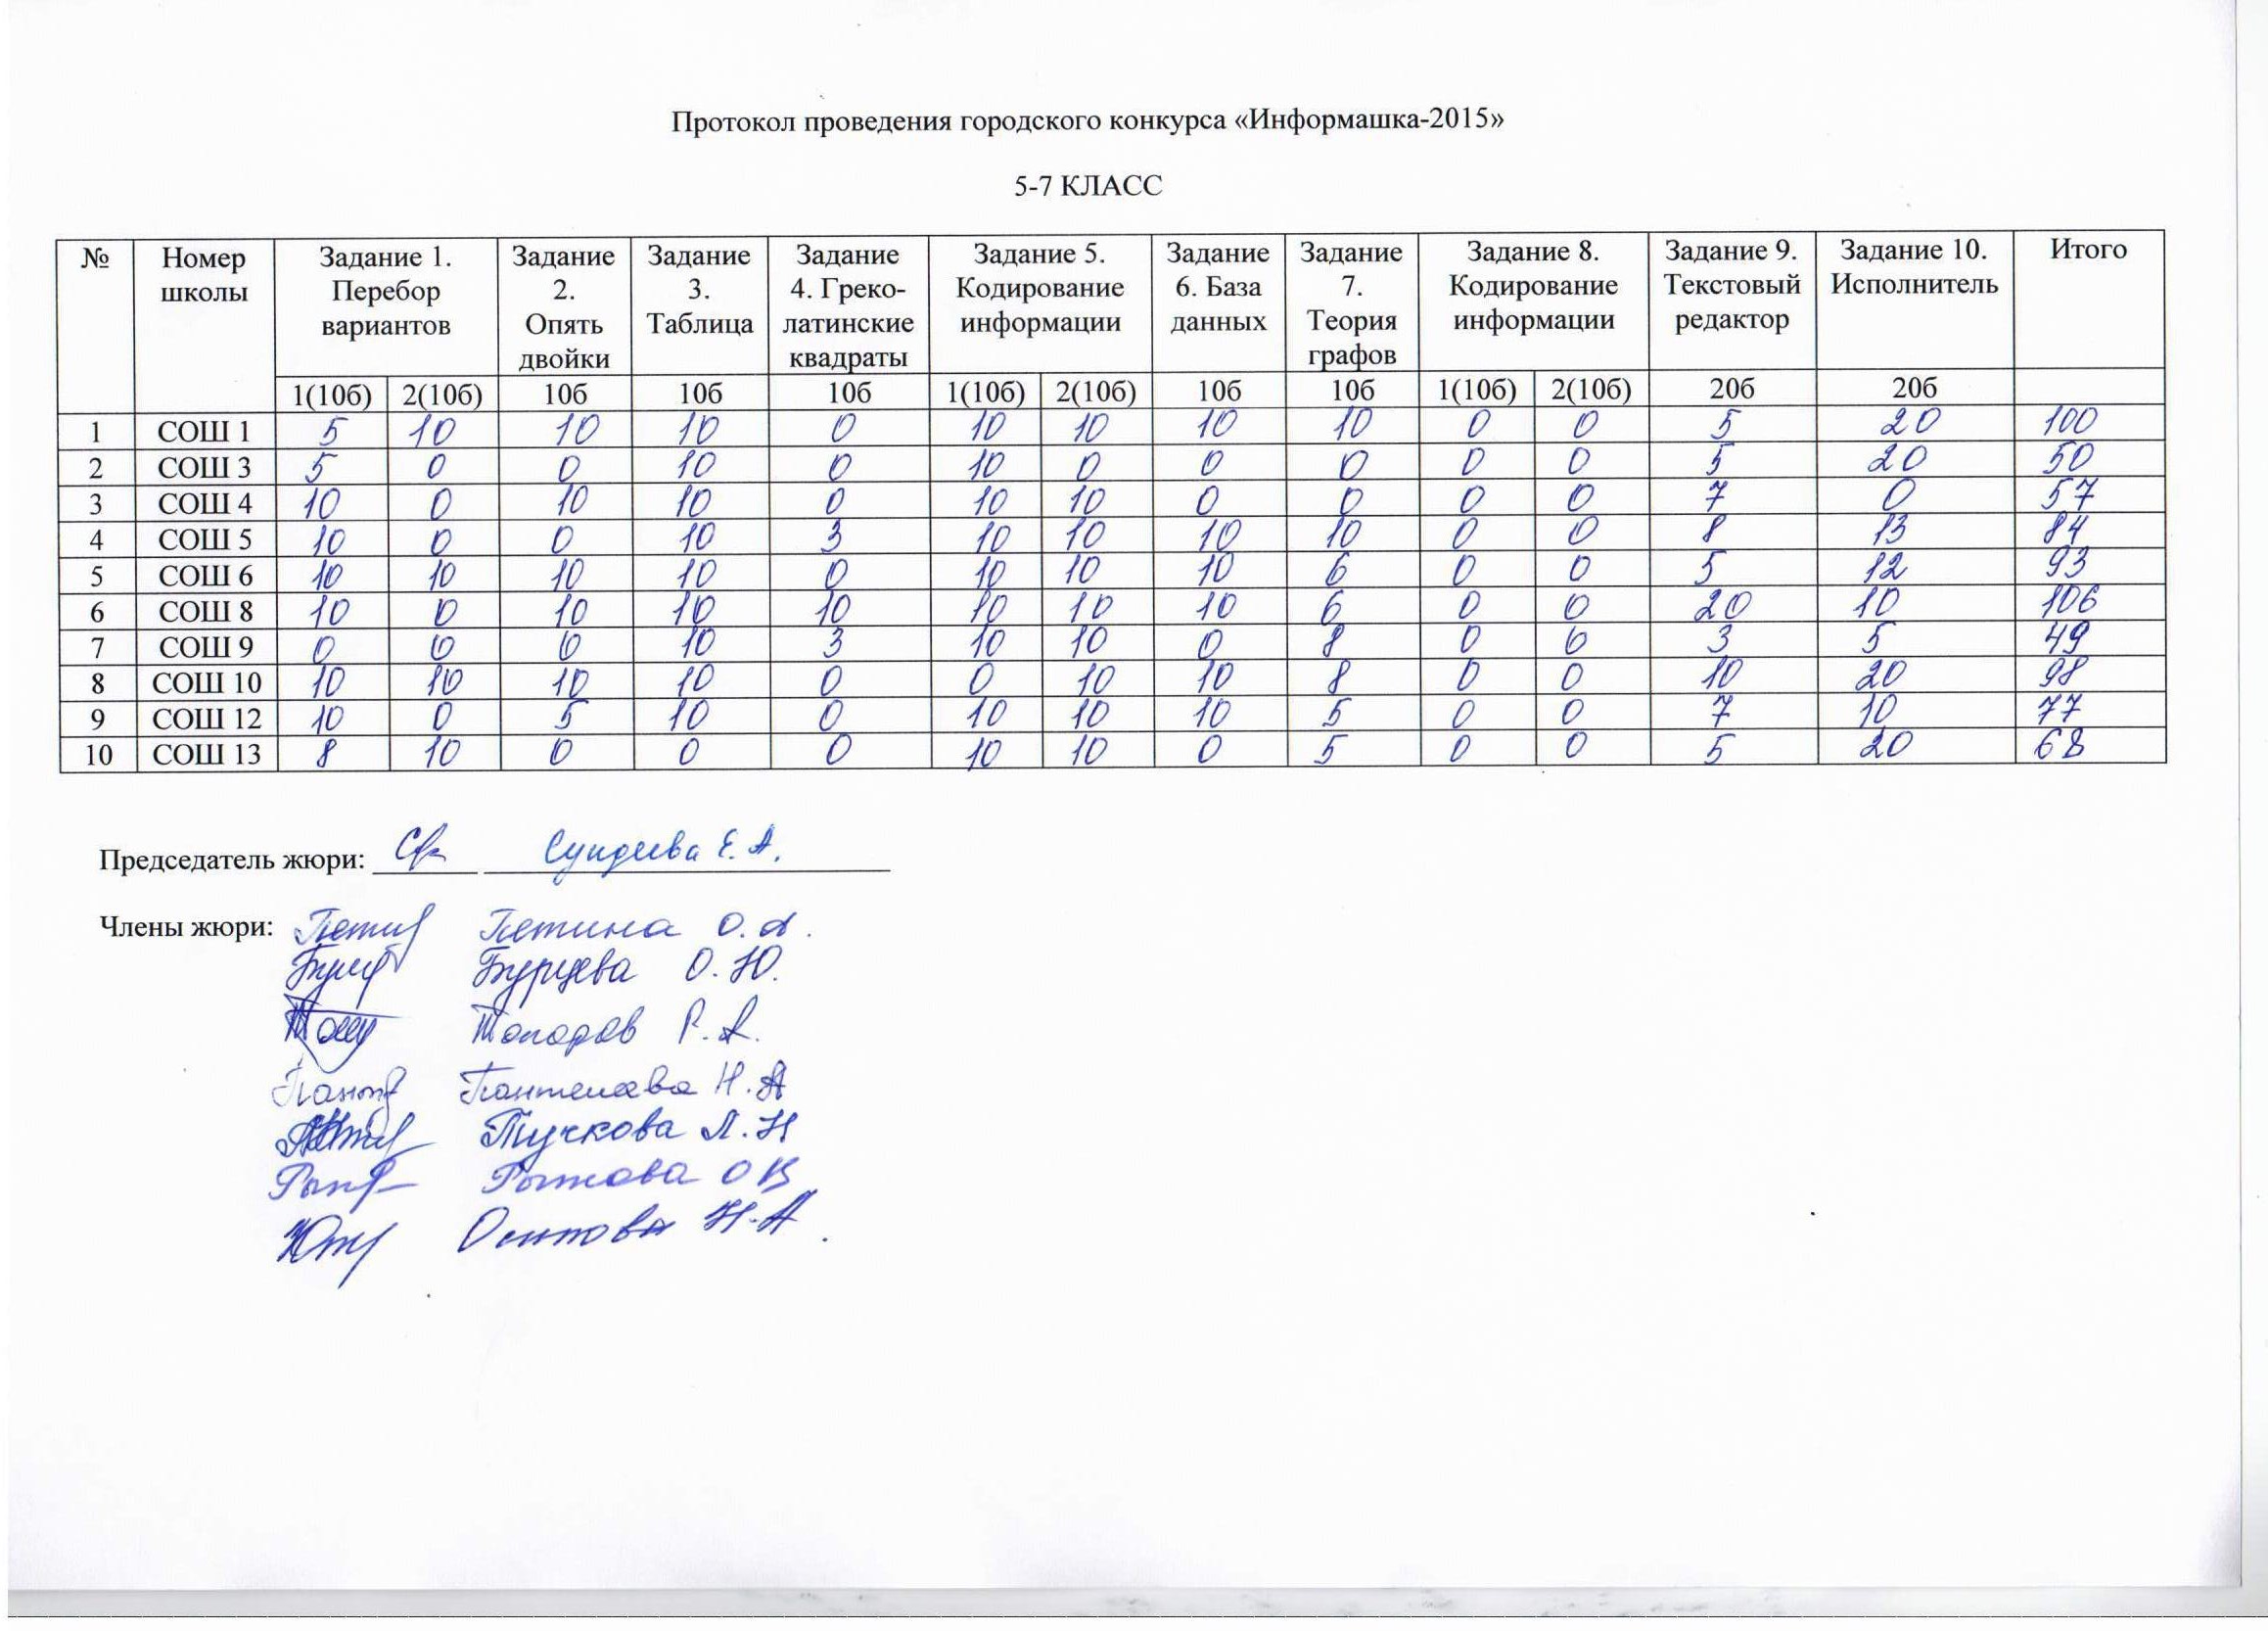 Протокол проведения городского конкурса «Информашка-2015»
5-7 КЛАСС
№ Номер школы Задание 1. Перебор вариантов Задание 2. Опять двойки Задание 3. Таблица Задание 4. Греко-латинские квадраты Задание 5. Кодирование информации Задание 6. База данных Задание 7. Теория графов Задание 8. Кодирование информации Задание 9. Текстовый редактор Задание 10. Исполнитель Итого
1(10б) 2(10б) 10б 10б 10б 1(10б) 2(10б) 10б 10б 1(10б) 2(10б) 20б 20б
1 СОШ 1 5 10 10 10 0 10 10 10 10 0 0 5 20 100
2 СОШ 3 5 0 0 10 0 10 0 0 0 0 0 5 20 50
3 СОШ 4 10 0 10 10 0 10 10 0 0 0 0 7 0 57
4 СОШ 5 10 0 0 10 3 10 10 10 10 0 0 8 13 84
5 СОШ 6 10 10 10 10 0 10 10 10 6 0 0 5 12 93
6 СОШ 8 10 0 10 10 10 10 10 10 6 0 0 20 10 106
7 СОШ 9 0 0 0 10 3 10 10 0 8 0 0 3 5 49
8 СОШ 10 10 10 10 10 0 0 10 10 8 0 0 10 20 98
9 СОШ 12 10 0 5 10 0 10 10 10 5 0 0 7 10 77
10 СОШ 13 8 10 0 0 0 10 10 0 5 0 0 5 20 68
Председатель жюри: Сундеева Е. А.
Члены жюри: Петина О. А.
Бурцева О. Ю.
Топоров Р. А.
Пантелеева Н. А
Тучкова Л. Н
Рыжова О В
Осипова Н. А.